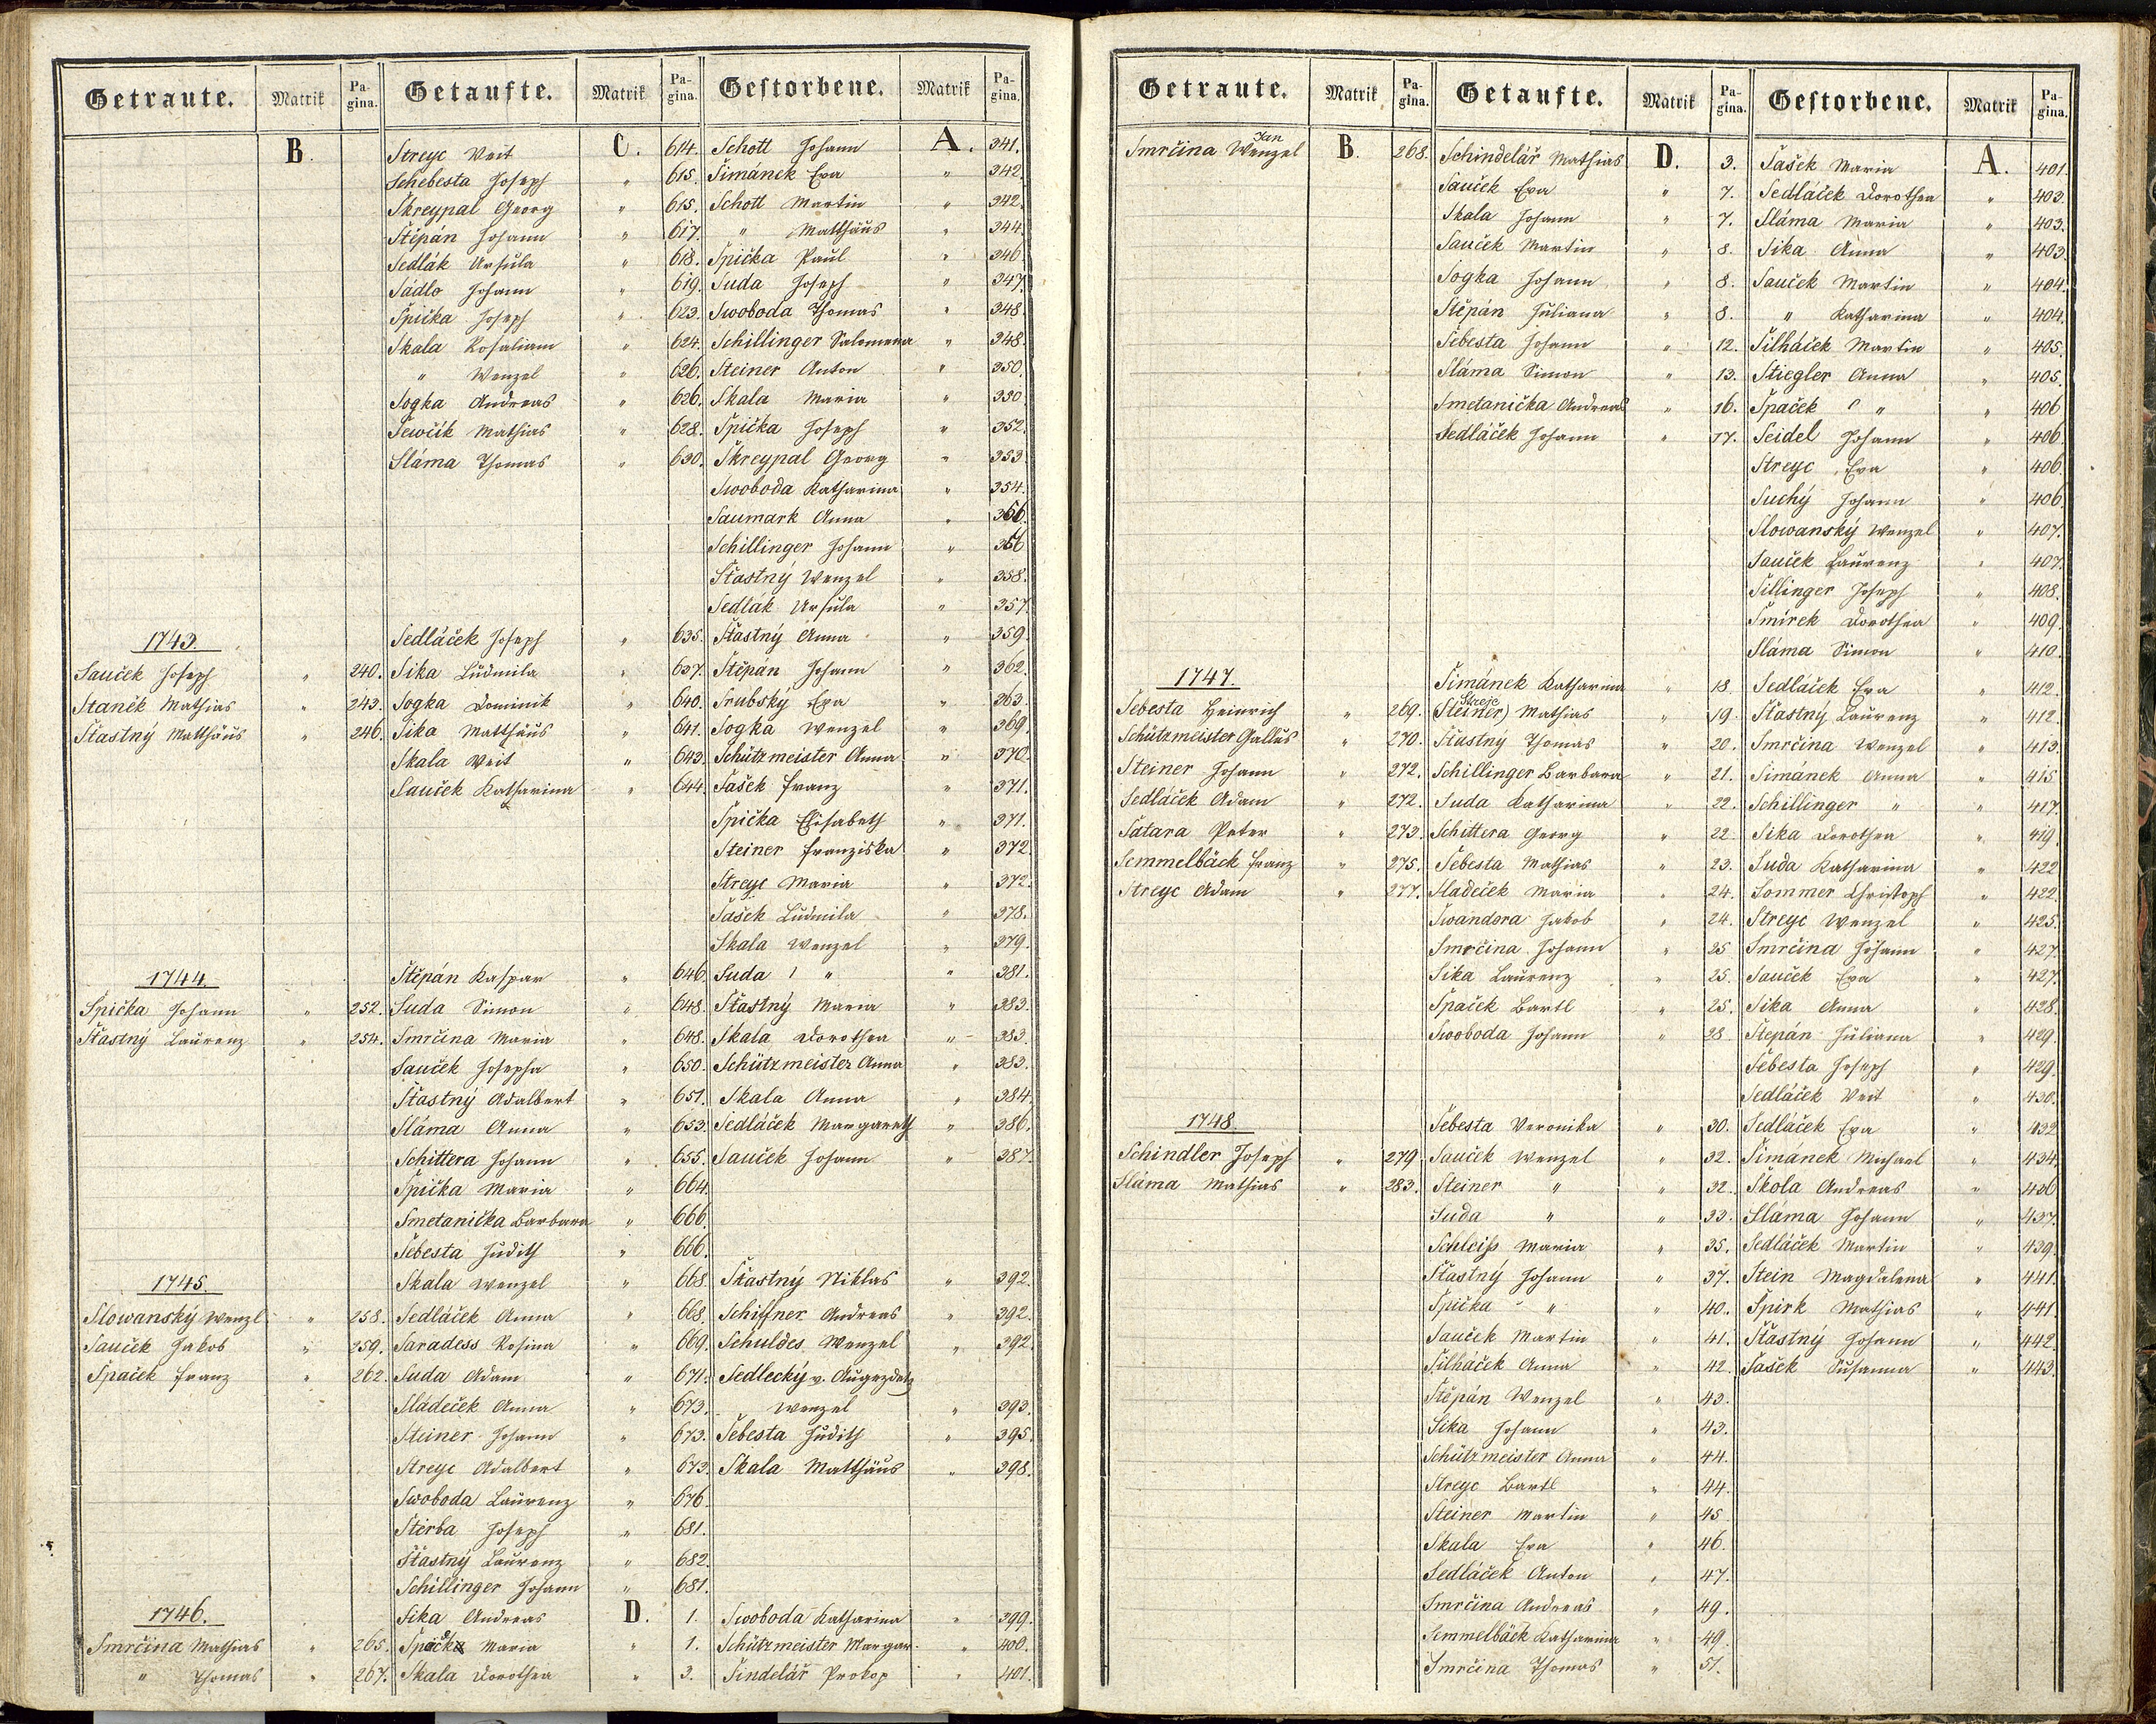 Getraute. Matrik Pagina. Getaufte. Matrik Pagina. Gestorbene. Matrik Pagina.
B. Streyc Veit C. 614. Schott Johann A. 341.
Schebesta Joseph " 615. Šimánek Eva " 342.
Skreypal Georg " 615. Schott Martin " 342.
Štěpán Johann " 617. " Matthäus " 344.
Sedlák Ursula " 618. Špička Paul " 346.
Sádlo Johann " 619. Suda Joseph " 347.
Špička Joseph " 623. Swoboda Thomas " 348.
Skala Rosaliam " 624. Schillinger Salomena " 348.
" Wenzel " 626. Steiner Anton " 350.
Sogka Andreas " 626. Skala Maria " 350.
Ševčík Mathias " 628. Špička Joseph " 352.
Sláma Thomas " 630. Skreypal Georg " 353.
Swoboda Katharina " 354.
Saumark Anna " 356.
Schillinger Johann " 356
Šťastný Wenzel " 358.
Sedlák Ursula " 357.
1743. Sedláček Joseph " 635. Šťastný Anna " 359.
Sauček Joseph " 240. Sika Ludmila " 637. Štěpán Johann " 362.
Staněk Mathias " 243. Sogka Dominik " 640. Srubský Eva " 363.
Šťastný Matthäus " 246. Sika Matthäus " 641. Sogka Wenzel " 369.
Skala Veit " 643. Schützmeister Anna " 370.
Sauček Katharina " 644. Šašek Franz " 371.
Špička Elisabeth " 371.
Steiner Franziska " 372.
Streyc Maria " 372.
Šašek Ludmila " 378.
Skala Wenzel " 379.
1744. Štěpán Kaspar " 646. Suda " " 381.
Špička Johann " 252. Suda Simon " 648. Šťastný Maria " 383.
Šťastný Laurenz " 254. Smrčina Maria " 648. Skala Dorothea " 383.
Sauček Josepha " 650. Schützmeister Anna " 383.
Šťastný Adalbert " 651. Skala Anna " 384.
Sláma Anna " 653. Sedláček Margareth " 386.
Schittera Johann " 655. Sauček Johann " 387.
Špička Maria " 664.
Smetanička Barbara " 666.
Šebesta Judith " 666.
1745. Skala Wenzel " 668. Šťastný Niklas " 392.
Slowanský Wenzl " 258. Sedláček Anna " 668. Schiffner Andreas " 392.
Sauček Jakob " 259. Saradess Rosina " 669. Schuldes Wenzel " 392.
Špaček Franz " 262. Suda Adam " 671. Sedlecký v. Augezdetz
Sládeček Anna " 673. Wenzel " 393.
Steiner Johann " 673. Šebesta Judith " 395.
Streyc Adalbert " 673. Skala Matthäus " 398.
Swoboda Laurenz " 676.
Štěrba Joseph " 681.
Šťastný Laurenz " 682.
Schillinger Johann " 681.
1746. Sika Andreas D. 1. Swoboda Katharina " 399.
Smrčina Mathias " 265. Maria " 1. Schützmeister Margar. " 400.
" Thomas " 267. Skala Dorothea " 3. Šindelář Prokop " 401.
Getraute. Matrik Pagina. Getaufte. Matrik Pagina. Gestorbene. Matrik Pagina.
Jan
Smrčina Wenzel B. 268. Schindelář Mathias D. 3. Šašek Maria A. 401.
Sauček Eva " 7. Sedláček Dorothea " 403.
Skala Johann " 7. Sláma Maria " 403.
Sauček Martin " 8. Sika Anna " 403.
Sogka Johann " 8. Sauček Martin " 404.
Štěpán Juliana " 8. " Katharina " 404.
Šebesta Johann " 12. Šilháček Martin " 405.
Sláma Simon " 13. Stiegler Anna " 405.
Smetanička Andreas " 16. Špaček " " 406
Sedláček Johann " 17. Seidel Johann " 406.
Streyc Eva " 406.
Suchý Johann " 406.
Slowanský Wenzel " 407.
Sauček Laurenz " 407.
Šillinger Joseph " 408.
Šmirek Dorothea " 409.
Sláma Simon " 410.
1747. Šimánek Katharina " 18. Sedláček Eva " 412.
Šebesta Heinrich " 269. (Steiner) Mathias " 19. Šťastný Laurenz " 412.
Schützmeister Gallus " 270. Šťastný Thomas " 20. Smrčina Wenzel " 413.
Steiner Johann " 272. Schillinger Barbara " 21. Šimánek Anna " 415
Sedláček Adam " 272. Suda Katharina " 22. Schillinger " " 417.
Šatara Peter " 273. Schittera Georg " 22. Sika Dorothea " 419.
Semmelbäck Franz " 275. Šebesta Mathias " 23. Suda Katharina " 422
Streyc Adam " 277. Sladeček Maria " 24. Sommer Christoph " 422.
Swandora Jakob " 24. Streyc Wenzel " 425.
Smrčina Johann " 25 Smrčina Johann " 427.
Sika Laurenz " 25. Sauček Eva " 427.
Špaček Bartl " 25. Sika Anna " 428.
Swoboda Johann " 28. Štepán Juliana " 429.
Šebesta Joseph " 429.
Sedláček Veit " 430.
1748. Šebesta Veronika " 30. Sedláček Eva " 432
Schindler Joseph " 279. Sauček Wenzel " 32. Šimánek Michael " 434.
Sláma Mathias " 283. Steiner " " 32. Škola Andreas " 436
Suda " " 33. Slama Johann " 437.
Schleiß Maria " 35. Sedláček Martin " 439.
Šťastný Johann " 37. Stein Magdalena " 441.
Špička " " 40. Spirk Mathias " 441.
Sauček Martin " 41. Šťastný Johann " 442.
Šilháček Anna " 42. Šašek Susanna " 443.
Štěpán Wenzel " 43.
Sika Johann " 43.
Schützmeister Anna " 44.
Streyc Bartl " 44.
Steiner Martin " 45
Skala Eva " 46.
Sedláček Anton " 47.
Smrčina Andreas " 49.
Semmelbäck Katharina " 49.
Smrčina Thomas " 51.